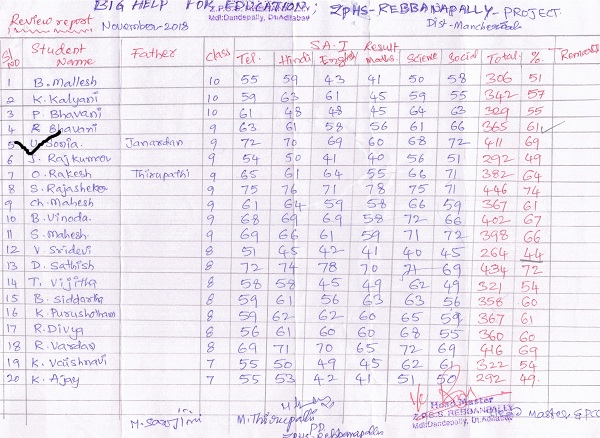 BIG HELP FOR EDUCATION; ZPHS-REBBANAPALLY-PROJECT
Review report November-2018 Mdl:Dandepally, Dt:Adilabad Dist-Mancherial
SA-I Result
Sl NO Student Name Father Class Tel. Hindi English Maths Science Social Total % Remarks
1 B. Mallesh 10 55 59 43 41 50 58 306 51
2 K. Kalyani 10 59 63 61 45 59 55 342 57
3 P. Bhavani 10 61 48 48 45 64 63 329 55
4 R Bhavani 9 63 61 58 56 61 66 365 61
5 U. Sonia Janardan 9 72 70 69 60 68 72 411 69
6 J. Rajkumar 9 54 50 41 40 56 51 292 49
7 O. Rakesh Thirupathi 9 65 61 64 55 66 71 382 64
8 S. Rajasheker 9 75 76 71 78 75 71 446 74
9 Ch. Mahesh 9 61 64 59 58 66 59 367 61
10 B. Vinoda 9 68 69 69 58 72 66 402 67
11 S. Mahesh 9 69 66 61 59 71 72 398 66
12 V. Sridevi 8 51 45 42 41 40 45 264 44
13 D. Sathish 8 72 74 78 70 71 69 434 72
14 T. Vijitha 8 58 58 45 49 62 49 321 54
15 B. Siddartha 8 59 61 56 63 63 56 358 60
16 K. Purushotham 8 59 62 62 60 65 59 367 61
17 R. Divya 8 56 61 60 60 68 55 360 60
18 R. Vardan 8 69 71 70 65 72 69 416 69
19 K. Vaishnavi 7 55 50 49 45 62 61 322 54
20 K. Ajay 7 55 53 42 41 51 50 292 49.
M. Sarojini M. Thirupathi Head Master
Z.P.H.S. REBBANAPALLY Master &
Mdl:Dandepally, Dt:Adilabad